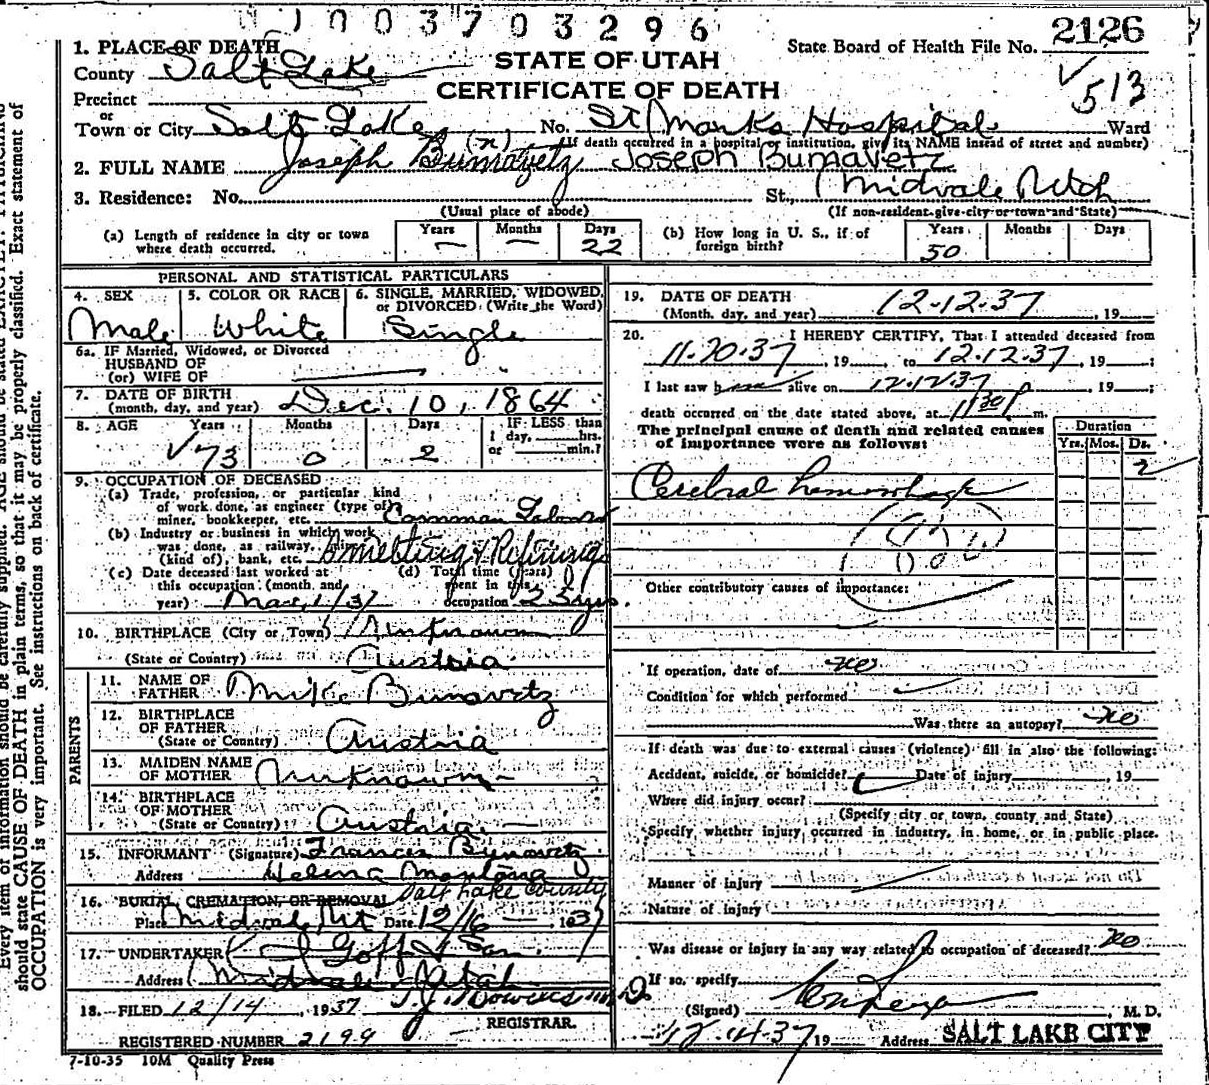 1003703296
1. PLACE OF DEATH
STATE OF UTAH
State Board of Health File No. 2126
County Salt Lake
CERTIFICATE OF DEATH
513
Precinct
or
Town or City Salt Lake No. St Marks Hospital Ward
(If death occurred in a hospital or institution, give its NAME instead of street and number)
2. FULL NAME Joseph Bumavetz (n) Joseph Bumavetz
3. Residence: No. St., Midvale Utah
(Usual place of abode) (If non-resident give city or town and State)
(a) Length of residence in city or town where death occurred. Years — Months — Days 22
(b) How long in U. S., if of foreign birth? Years 50 Months Days
PERSONAL AND STATISTICAL PARTICULARS
4. SEX Male
5. COLOR OR RACE White
6. SINGLE, MARRIED, WIDOWED, or DIVORCED (Write the Word) Single
6a. IF Married, Widowed, or Divorced
HUSBAND OF
(or) WIFE OF
7. DATE OF BIRTH
(month, day, and year) Dec. 10, 1864
8. AGE Years 73 Months 0 Days 2 IF LESS than 1 day, hrs. or min.?
9. OCCUPATION OF DECEASED
(a) Trade, profession, or particular kind
of work done, as engineer (type of)
miner, bookkeeper, etc. Common Laborer
(b) Industry or business in which work
was done, as railway,
(kind of), bank, etc. Smelting & Refining
(c) Date deceased last worked at
this occupation (month, and
year) Mar, 1/37
(d) Total time (years)
spent in this
occupation 25 yrs.
10. BIRTHPLACE (City or Town) Unknown
(State or Country) Austria
PARENTS
11. NAME OF
FATHER Mike Bunavetz
12. BIRTHPLACE
OF FATHER
(State or Country) Austria
13. MAIDEN NAME
OF MOTHER Unknown
14. BIRTHPLACE
OF MOTHER
(State or Country) Austria
15. INFORMANT (Signature) Frances Bunovetz
Address Helena Montana
16. BURIAL, CREMATION, OR REMOVAL Salt Lake County
Place Midvale Ut Date 12/16, 1937
17. UNDERTAKER Goff & Son
Address Midvale Utah
18. FILED 12/14, 1937
REGISTRAR.
REGISTERED NUMBER 2199
7-10-35 10M Quality Press
19. DATE OF DEATH
(Month, day, and year) 12-12-37, 19
20. I HEREBY CERTIFY, That I attended deceased from
11-20-37, 19 to 12-12-37, 19 ;
I last saw h alive on 12-12-37, 19 ;
death occurred on the date stated above, at 1:30 P m.
The principal cause of death and related causes
of importance were as follows:
Duration
Yrs. Mos. Ds.
2
Cerebral hemorrhage
Other contributory causes of importance:
If operation, date of no
Condition for which performed
Was there an autopsy? no
If death was due to external causes (violence) fill in also the following:
Accident, suicide, or homicide? Date of injury, 19
Where did injury occur?
(Specify city or town, county and State)
Specify whether injury occurred in industry, in home, or in public place.
Manner of injury
Nature of injury
Was disease or injury in any way related to occupation of deceased? no
If so, specify
(Signed) , M. D.
12-14-37 19 Address SALT LAKE CITY
Every item of information should be carefully supplied. AGE should be stated EXACTLY. PHYSICIANS
should state CAUSE OF DEATH in plain terms, so that it may be properly classified. Exact statement of
OCCUPATION is very important. See instructions on back of certificate.